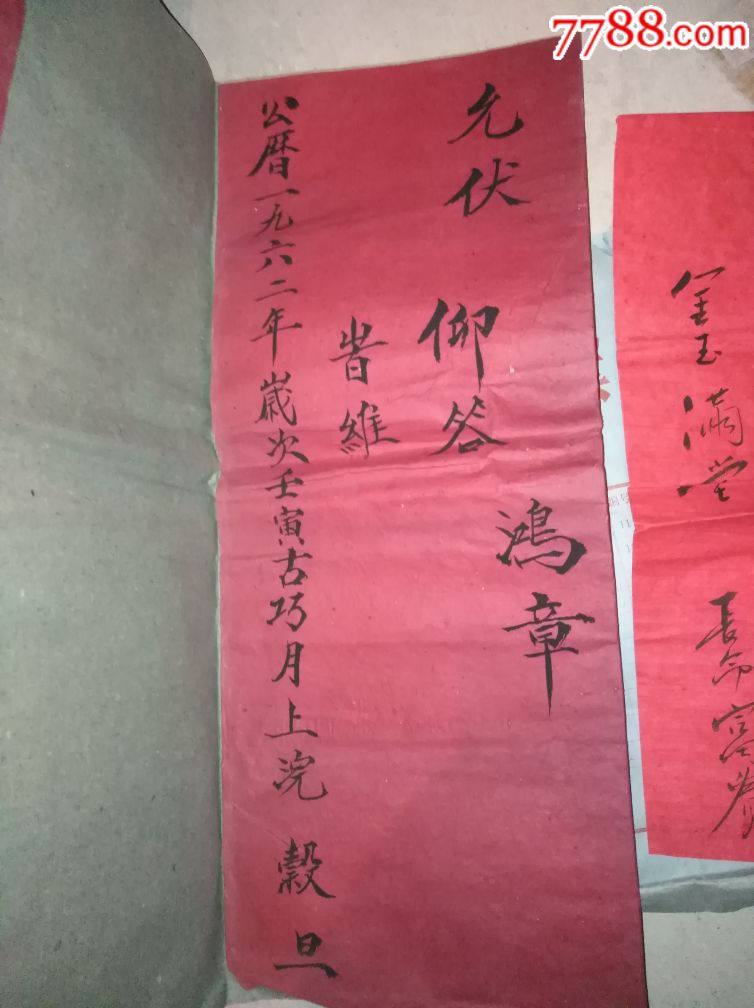 7788.com
金玉满堂
長命富貴
允伏
鴻章
仰答
旹維
公曆一九六二年歲次壬寅古巧月上浣 穀旦